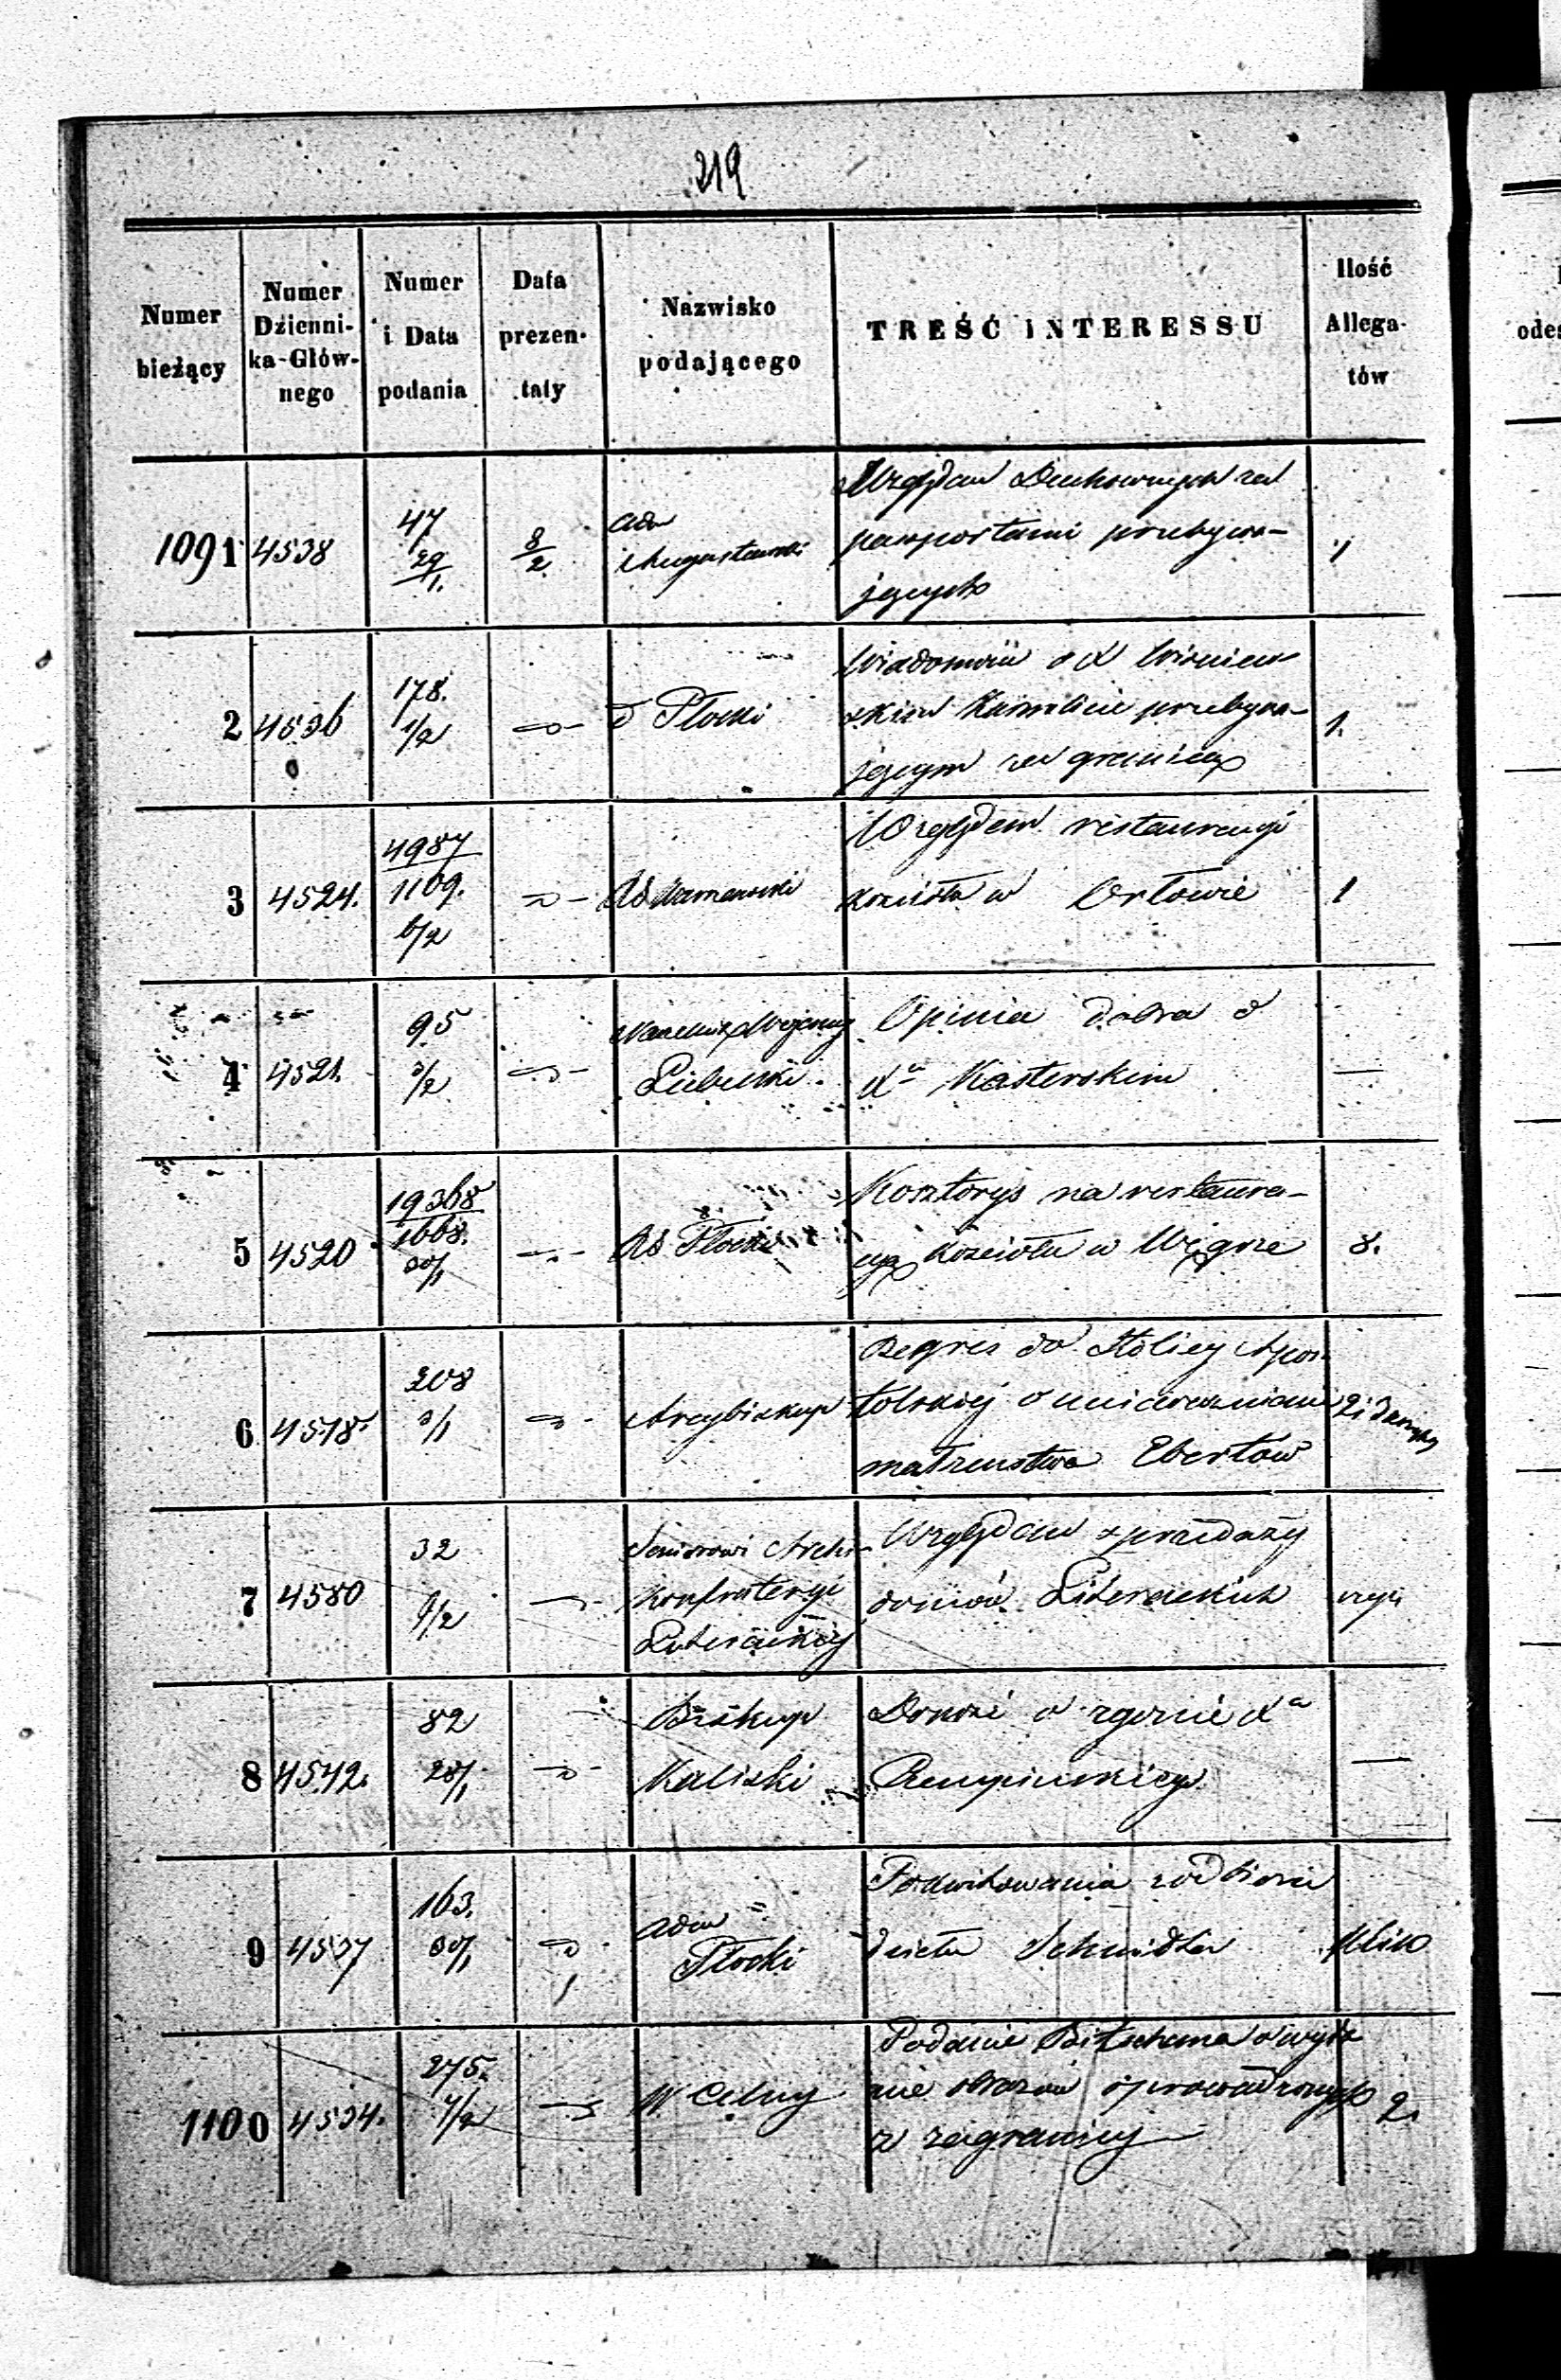 219
Numer bieżący
Numer Dzienni-ka-Głów-nego
Numer i Data podania
Data prezen-taty
Nazwisko podającego
TREŚĆ INTERESSU
Ilość Allega-tów
1091 4538 47 29/1. 8/2 Adm Augustowski
Względem Duchownych za
paszportami przebywa-
jących
1
2 4536 178. 1/2 Płocki
Wiadomość o X Wiśniew-
skim Karmelicie przebywa-
jącym za granicą
1.
3 4524. 4987/1109. 6/2 RG Warszawski
Względem restauracyi
kościoła w Orłowie
1
4 4521. 95 3/2
Lubelski.
Opinia dobra o
Xu Kasterskim
—
5 4520 19368/1668. 30/1 RG Płocki
Kosztorys na restaura-
cyą kościoła w Węgrze
8.
6 4518. 208 3/1 Arcybiskup
Regres do Stolicy Apos-
tolskiej o unieważnienie
małżeństwa Ebertów
2
7 4580 32 1/2 Seniorowi Archi-
Konfrateryi
Literackiej
Względem sprzedaży
domów Literackich
8 4542. 82 28/1 Biskup
Kaliski
Donosi o zgonie Xa
—
9 4537 163. 30/1 Adm
Płocki
Pokwitowania z odbioru
dzieła Schmidta
1100 4534. 275. 7/2 W Celny
Podanie o wyda
nie obrazów sprowadzonych
z zagranicy
2.